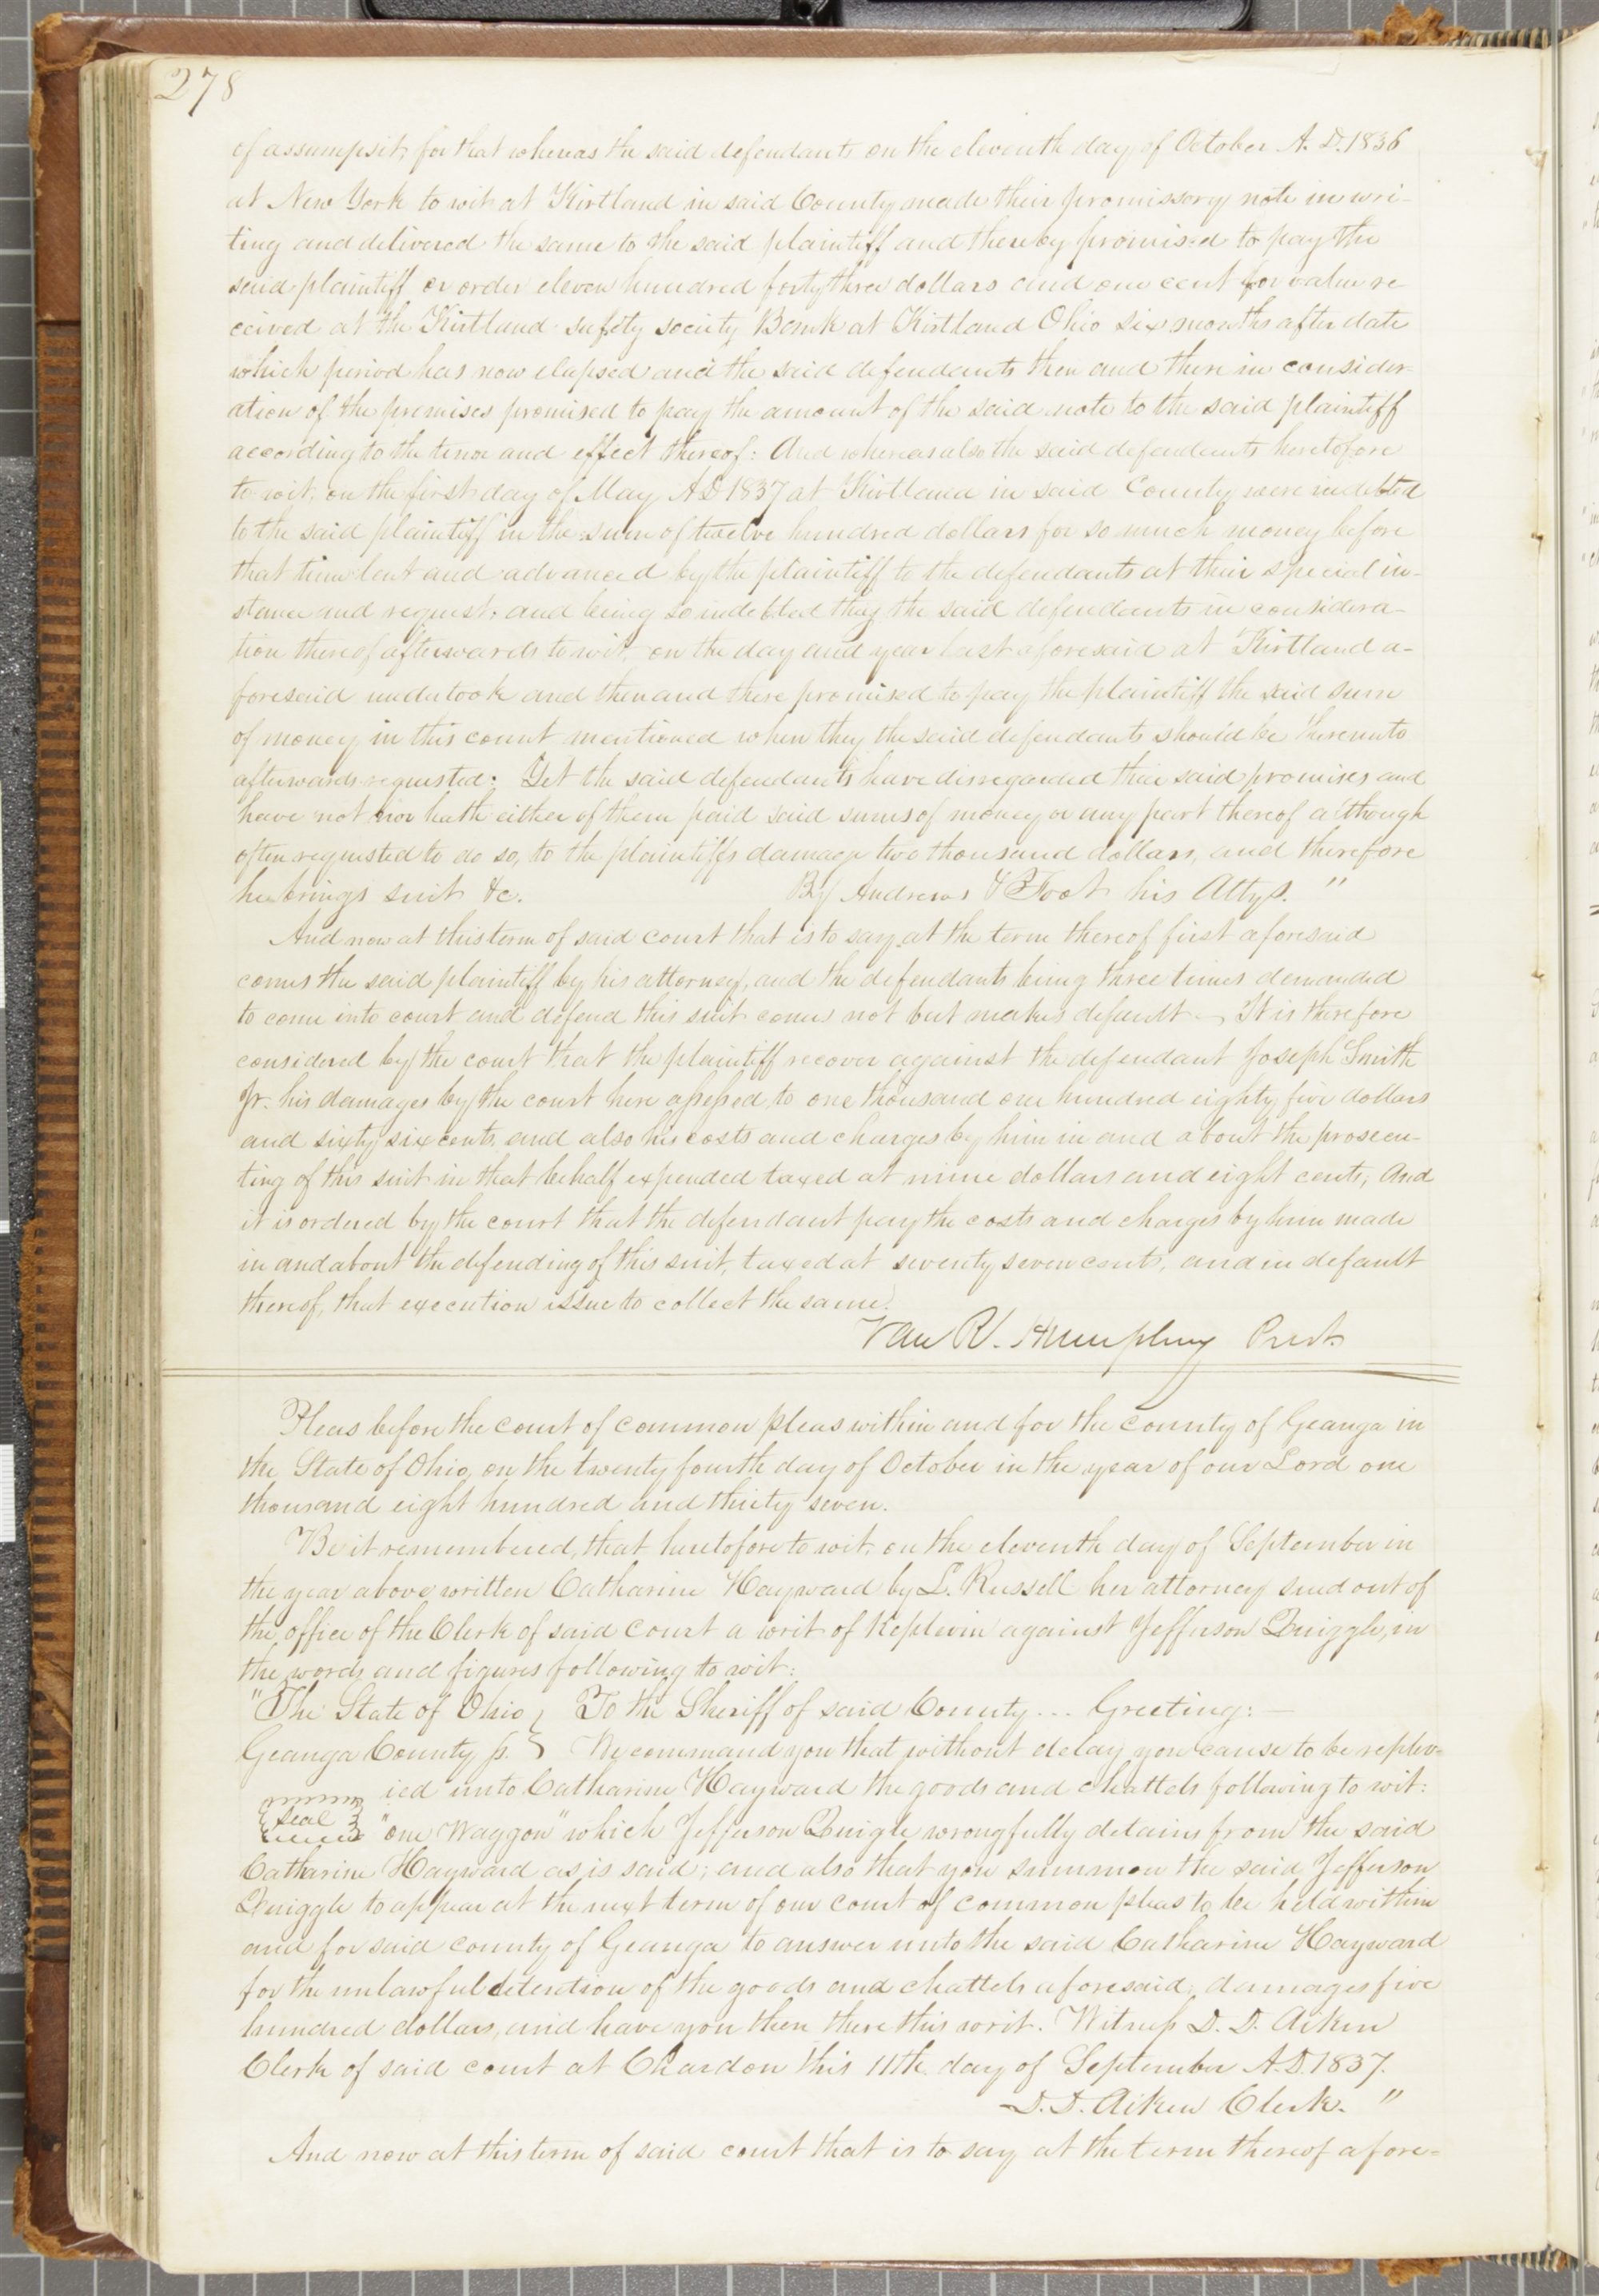 278
of assumpsit; for that whereas the said defendants on the eleventh day of October A. D. 1836
at New York to wit at Kirtland in said County made their promissory note in wri-
ting and delivered the same to the said plaintiff and thereby promised to pay the
said plaintiff or order eleven hundred forty three dollars and one cent for value re
ceived at the Kirtland safety society Bank at Kirtland Ohio six months after date
which period has now elapsed and the said defendants then and there in consider-
ation of the premises promised to pay the amount of the said note to the said plaintiff
according to the tenor and effect thereof: And whereas also the said defendants heretofore
to wit, on the first day of May A D 1837 at Kirtland in said County were indebted
to the said plaintiff in the sum of twelve hundred dollars for so much money before
that time lent and advanced by the plaintiff to the defendants at their special in-
stance and request; and being so indebted they the said defendants in considera-
tion thereof, afterwards to wit, on the day and year last aforesaid at Kirtland a-
foresaid undertook and then and there promised to pay the plaintiff the said sum
of money in this count mentioned when they the said defendants should be thereunto
afterwards requested: Yet the said defendants have disregarded their said promises and
have not nor hath either of them paid said sums of money or any part thereof although
often requested to do so, to the plaintiffs damage two thousand dollars, and therefore
he brings suit &c. By Andrews & Foot his Attys. "
And now at this term of said court that is to say at the term thereof first aforesaid
comes the said plaintiff by his attorney, and the defendants being three times demanded
to come into court and defend this suit comes not but makes default - It is therefore
considered by the court that the plaintiff recover against the defendant Joseph Smith
Jr. his damages by the court here assessed to one thousand one hundred eighty five dollars
and sixty six cents, and also his costs and charges by him in and about the prosecu-
ting of this suit in that behalf expended taxed at nine dollars and eight cents; And
it is ordered by the court that the defendant pay the costs and charges by him made
in and about the defending of this suit, taxed at seventy seven cents, and in default
thereof, that execution issue to collect the same.
Van R. Humphrey Prest.
Pleas before the court of common pleas within and for the county of Geauga in
the State of Ohio, on the twenty fourth day of October in the year of our Lord one
thousand eight hundred and thirty seven.
Be it remembered, that heretofore to wit, on the eleventh day of September in
the year above written Catharine Hayward by L. Russell her attorney sued out of
the office of the Clerk of said Court a writ of Replevin against Jefferson Quiggle, in
the words and figures following to wit:
"The State of Ohio } To the Sheriff of said County... Greeting: -
Geauga County ss. } We command you that without delay you cause to be replev-
ied unto Catharine Hayward the goods and chattels following to wit:
seal "one Waggon" which Jefferson Quigle wrongfully detains from the said
Catharine Hayward as is said; and also that you summon the said Jefferson
Quiggle to appear at the next term of our court of common pleas to be held within
and for said county of Geauga to answer unto the said Catharine Hayward
for the unlawful detention of the goods and chattels aforesaid, damages five
hundred dollars, and have you then there this writ. Witness D. D. Aiken
Clerk of said court at Chardon this 11th day of September A. D. 1837.
D. D. Aiken Clerk. "
And now at this term of said court that is to say at the term thereof afore-